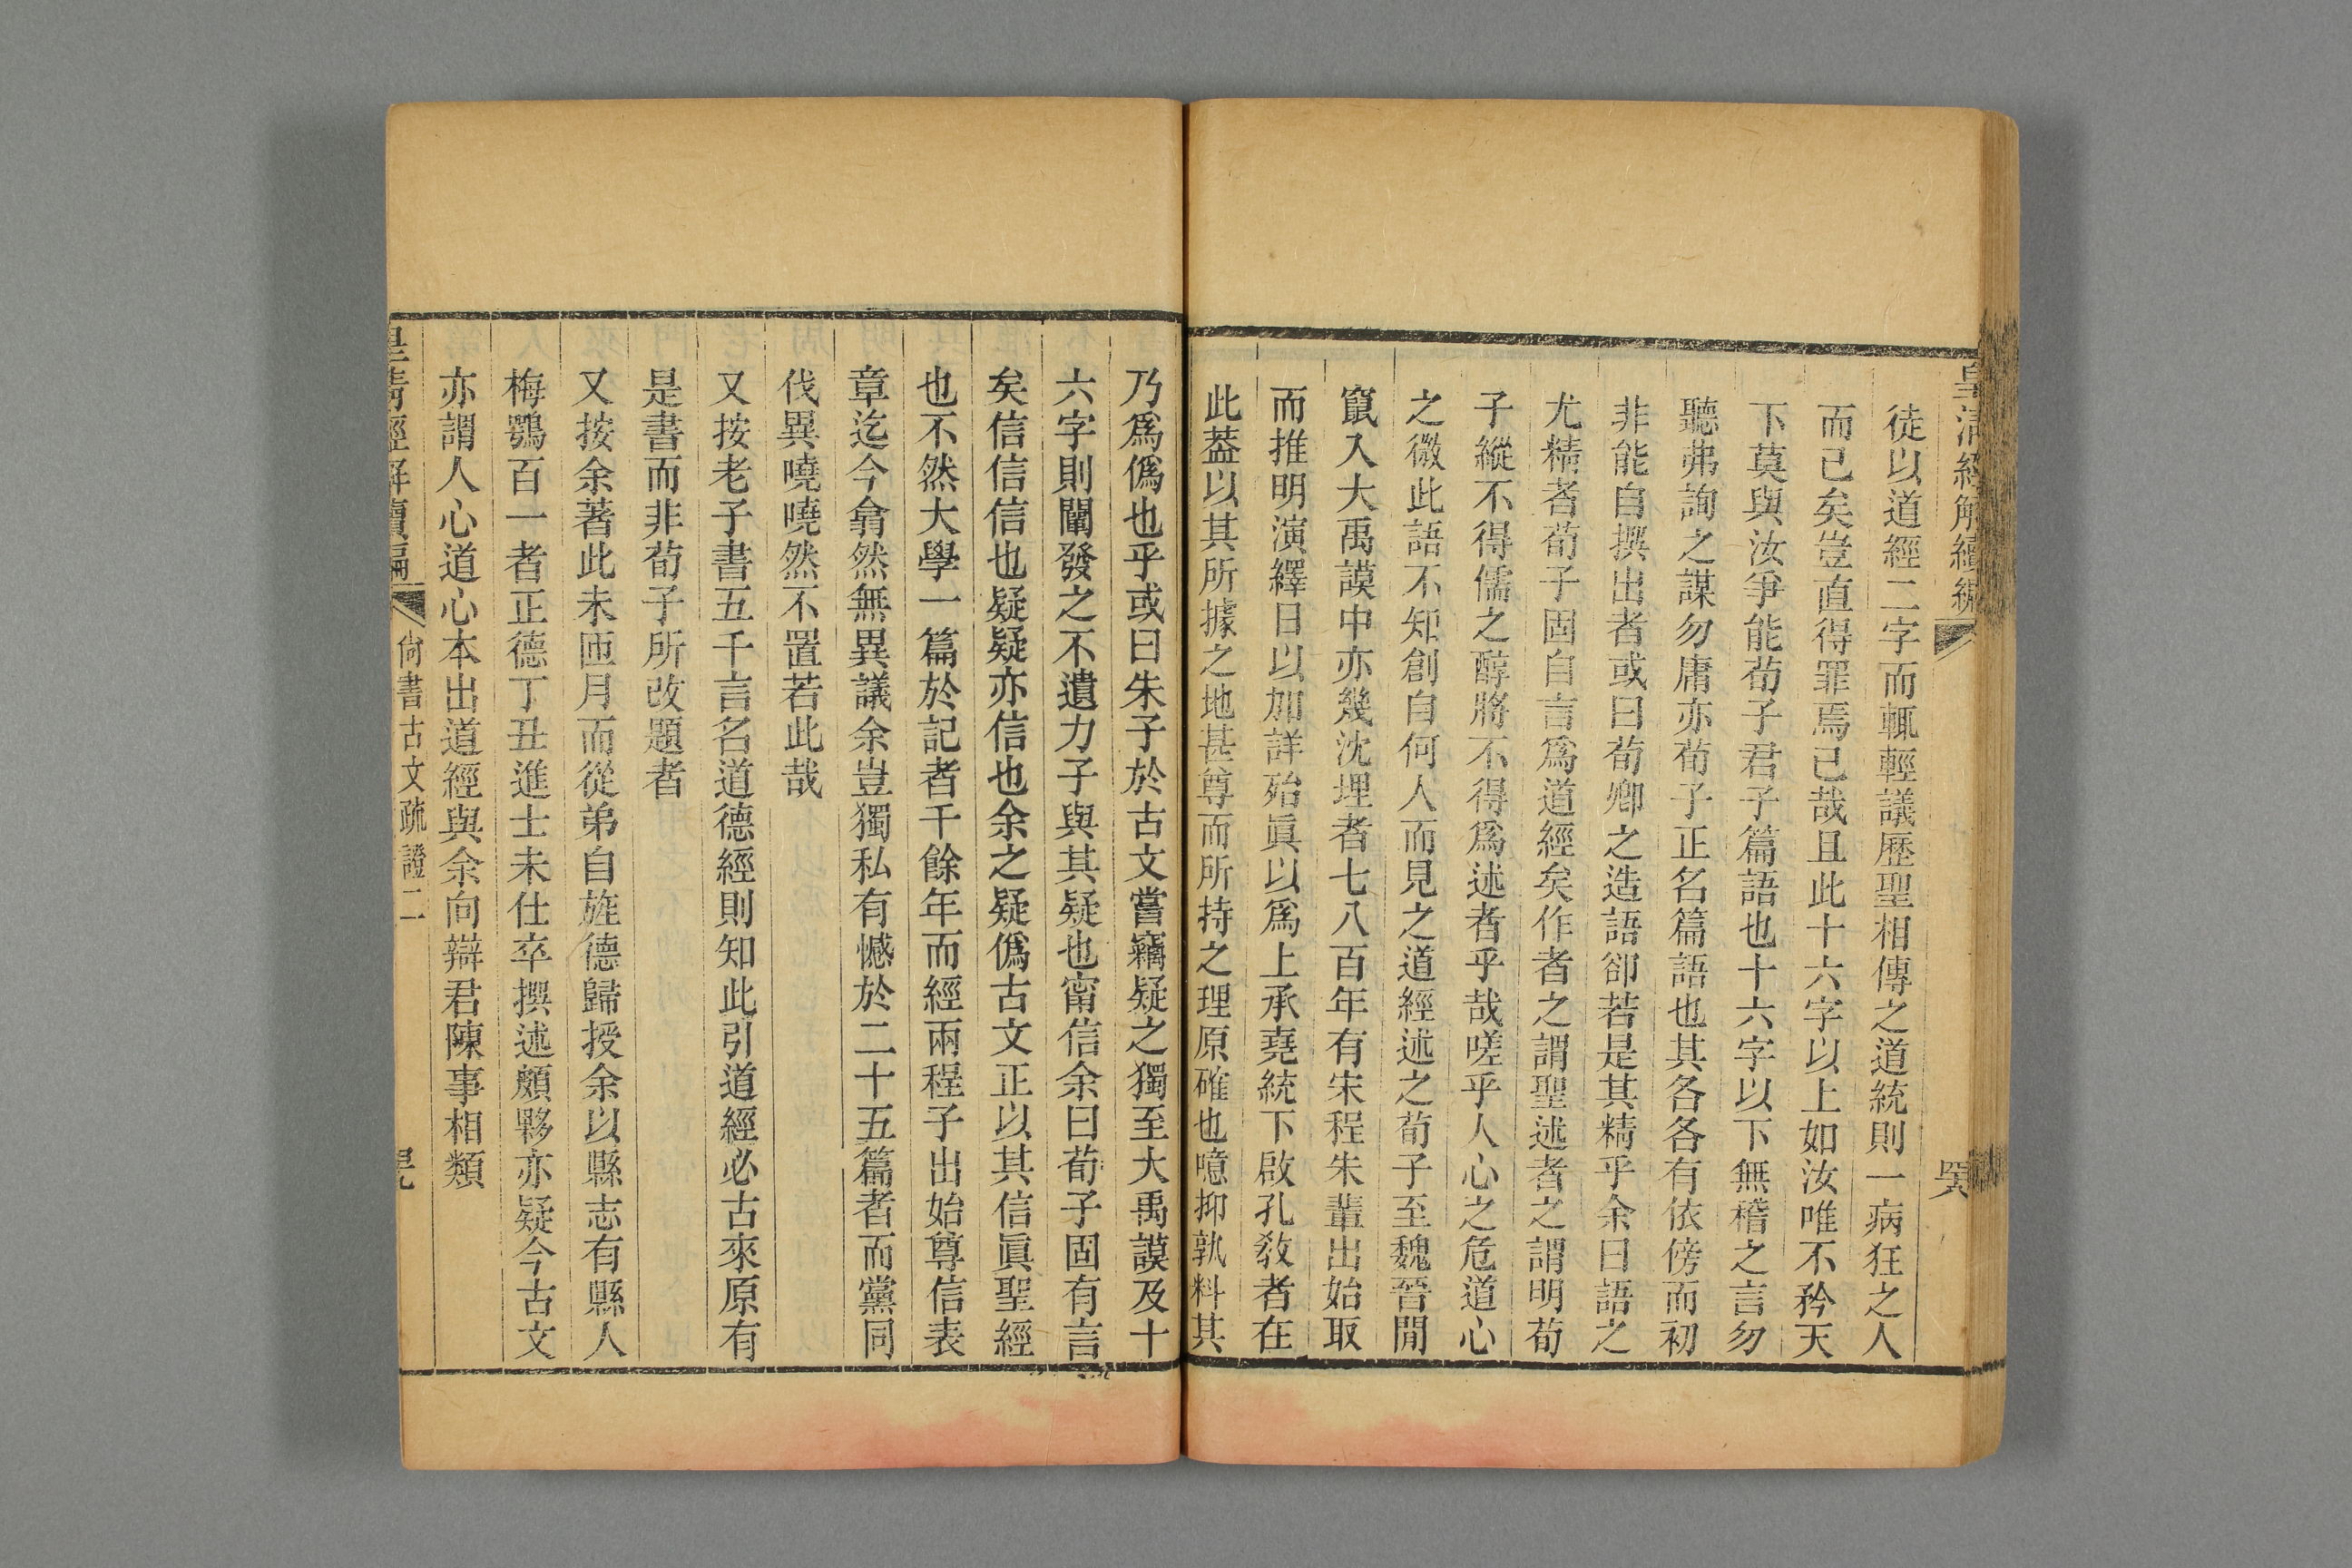 皇清經解續編
徒以道經二字而輒輕議歷聖相傳之道統則一病狂之人
而已矣豈直得罪焉已哉且此十六字以上如汝唯不矜天
下莫與汝爭能荀子君子篇語也十六字以下無稽之言勿
聽弗詢之謀勿庸亦荀子正名篇語也其各各有依傍而初
非能自撰出者或曰荀卿之造語卻若是其精乎余曰語之
尤精者荀子固自言爲道經矣作者之謂聖述者之謂明荀
子縱不得儒之醇將不得爲述者乎哉嗟乎人心之危道心
之微此語不知創自何人而見之道經述之荀子至魏晉閒
竄入大禹謨中亦幾沈埋者七八百年有宋程朱輩出始取
而推明演繹日以加詳殆眞以爲上承堯統下啟孔敎者在
此葢以其所據之地甚尊而所持之理原確也噫抑孰料其
乃爲僞也乎或曰朱子於古文嘗竊疑之獨至大禹謨及十
六字則闡發之不遺力子與其疑也甯信余曰荀子固有言
矣信信信也疑疑亦信也余之疑僞古文正以其信眞聖經
也不然大學一篇於記者千餘年而經兩程子出始尊信表
章迄今翕然無異議余豈獨私有憾於二十五篇者而黨同
伐異嘵嘵然不置若此哉
又按老子書五千言名道德經則知此引道經必古來原有
是書而非荀子所改題者
又按余著此未匝月而從弟自旌德歸授余以縣志有縣人
梅鶚百一者正德丁丑進士未仕卒撰述頗夥亦疑今古文
亦謂人心道心本出道經與余向辯君陳事相類
皇清經解續編
尙書古文疏證二